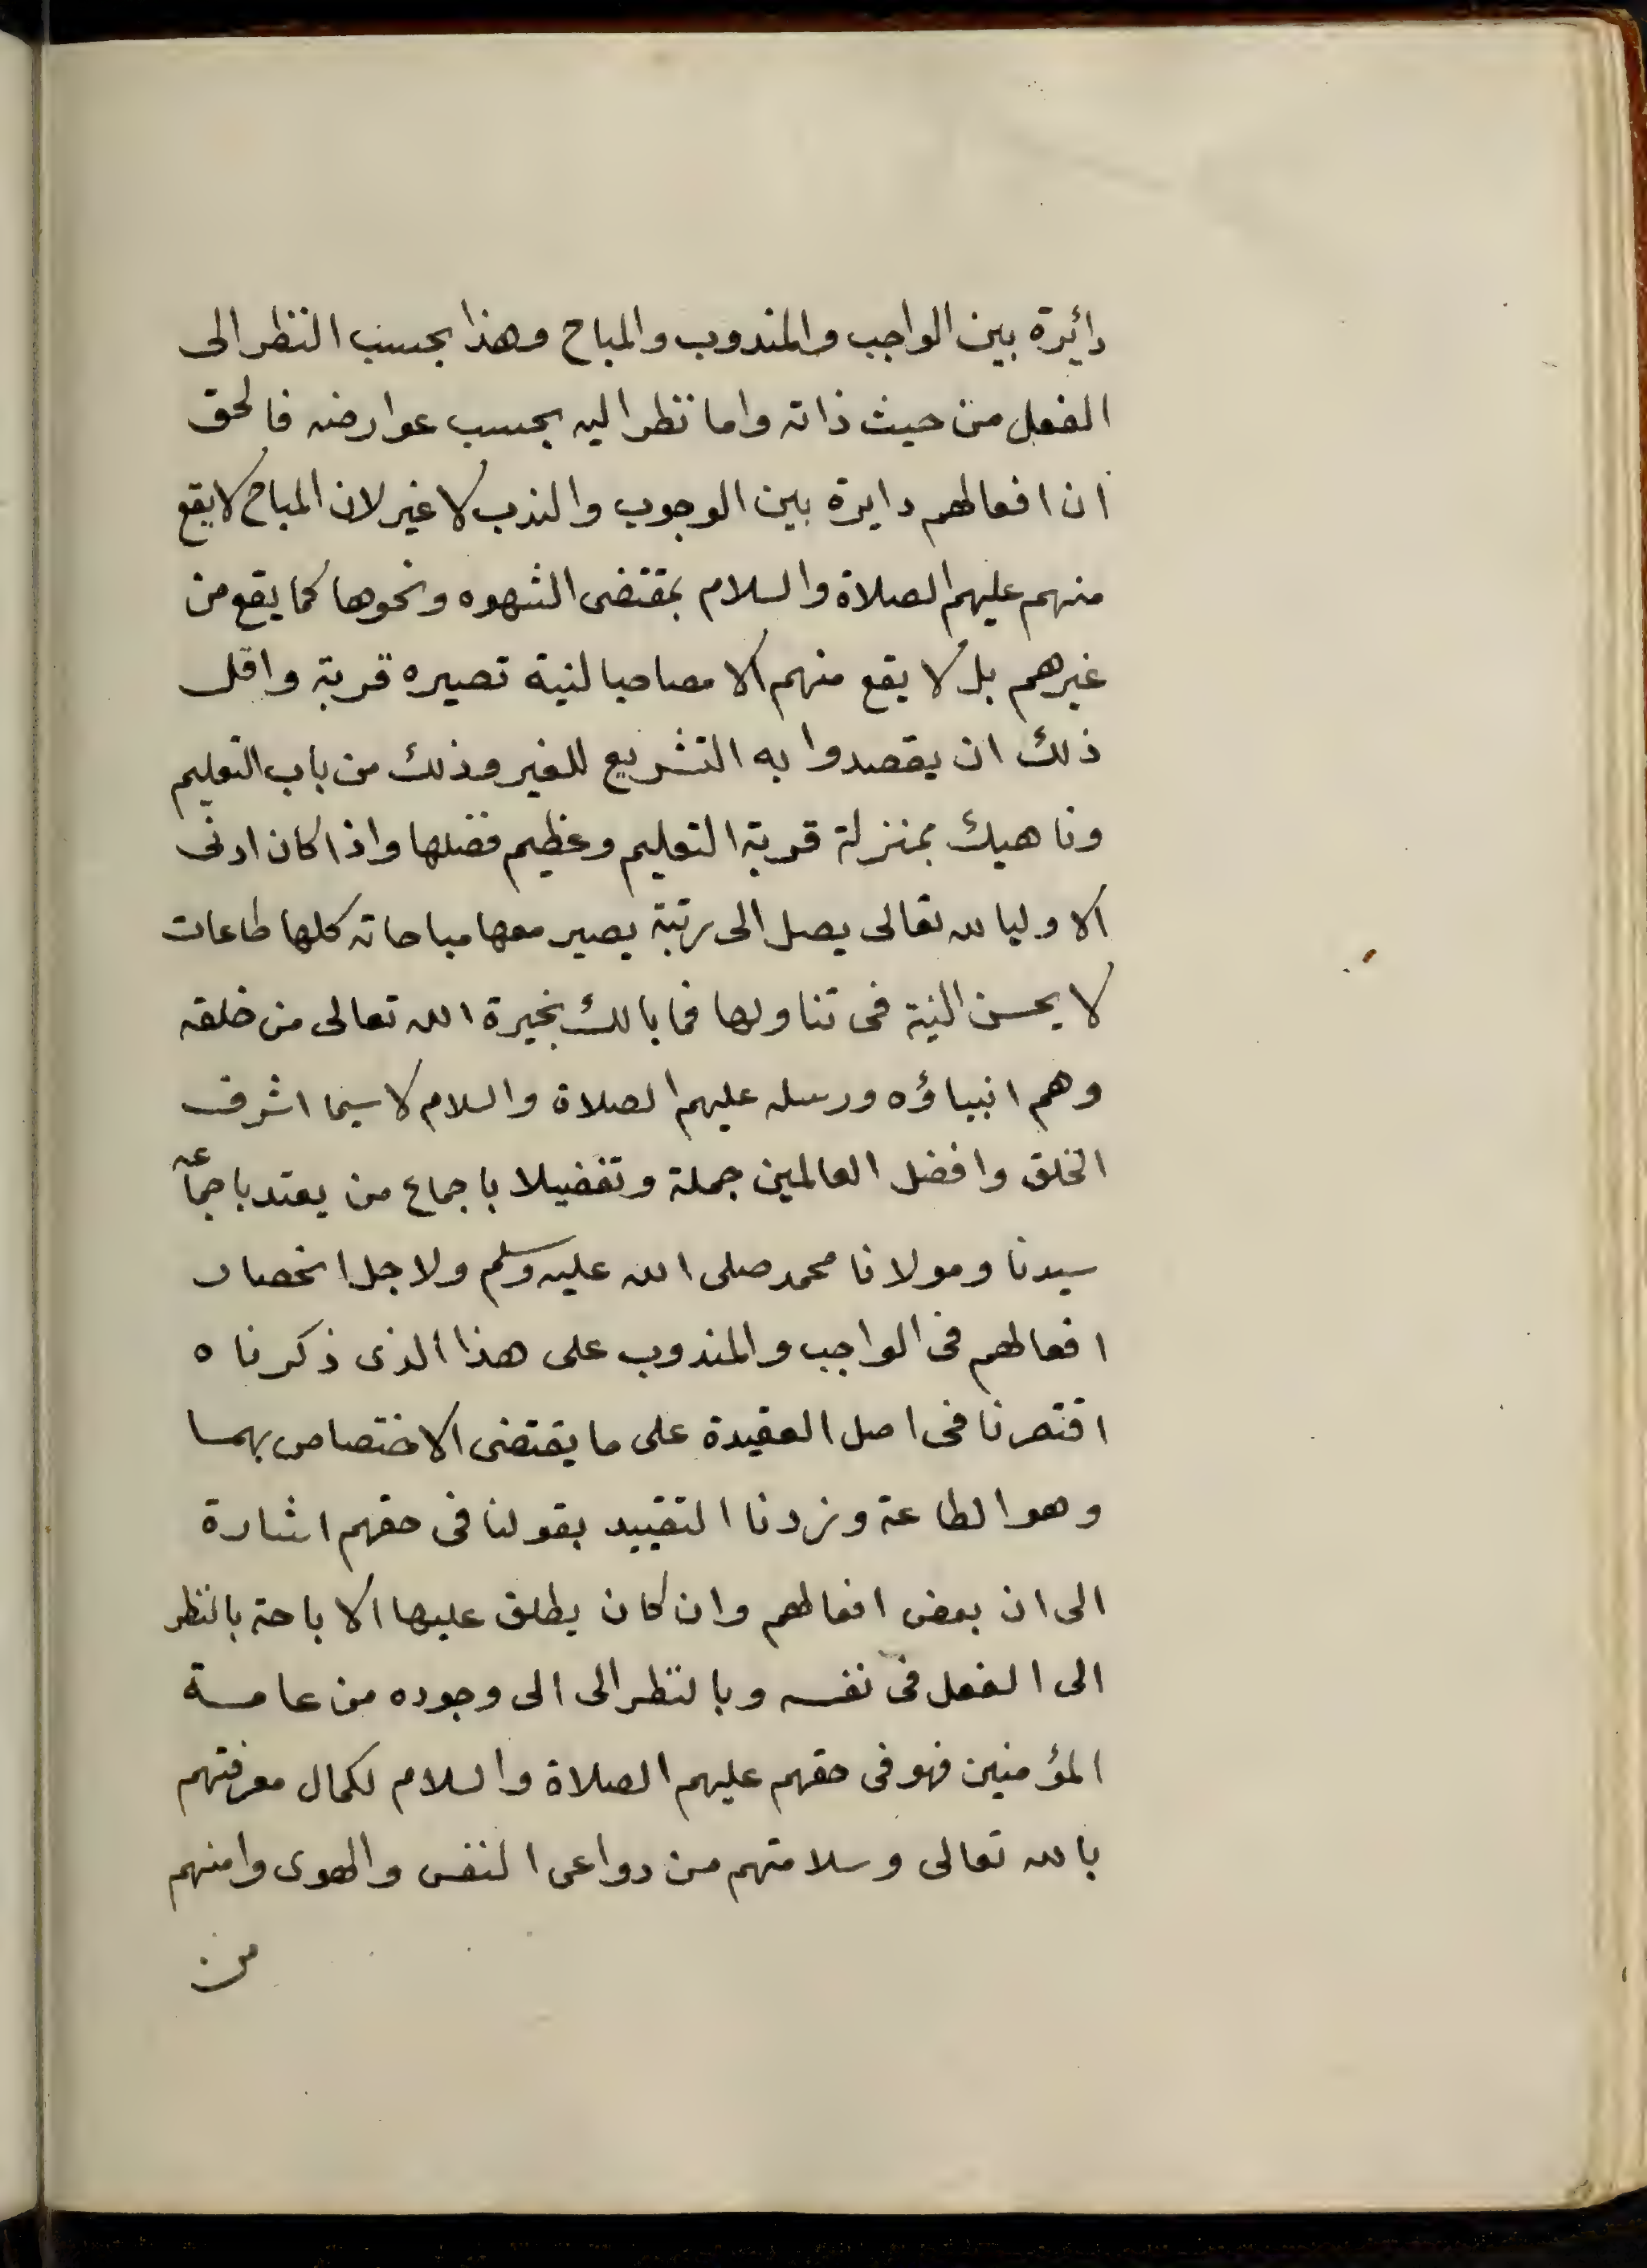 دائرة بين الواجب والمندوب والمباح وهذا بحسب النظر الى
الفعل من حيث ذاته واما نظر اليه بحسب عوارضه فالحق
ان افعالهم دايرة بين الوجوب والندب لا غير لان المباح لا يقع
منهم عليهم الصلاة والسلام بمقتضى الشهوه ونحوها كما يقع من
غيرهم بل لا يقع منهم الا مصاحبا لنية تصيره قربة واقل
ذلك ان يقصدوا به التشريع للغير وذلك من باب التعليم
وناهيك بمنزلة قربة التعليم وعظيم فضلها واذا كان ادنى
الاوليا لله تعالى يصل الى رتبة يصير معها مباحاته كلها طاعات
لا يحسن النية فى تناولها فما بالك بخيرة الله تعالى من خلقه
وهم انبياؤه ورسله عليهم الصلاة والسلام لا سيما اشرف
الخلق وافضل العالمين جملة وتفضيلا باجماع من يعتد باجماعه
سيدنا ومولانا محمد صلى الله عليه وسلم ولاجل انحصار
افعالهم فى الواجب والمندوب على هذا الذى ذكرناه
اقتصرنا فى اصل العقيدة على ما يقتضى الاختصاص بهما
وهو الطاعة وزدنا التقييد بقولنا فى حقهم اشارة
الى ان بعض افعالهم وان كان يطلق عليها الاباحة بالنظر
الى الفعل فى نفسه وبالنظر الى الى وجوده من عامة
المؤمنين فهو فى حقهم عليهم الصلاة والسلام لكمال معرفتهم
بالله تعالى وسلامتهم من دواعى النفس والهوى وامنهم
من